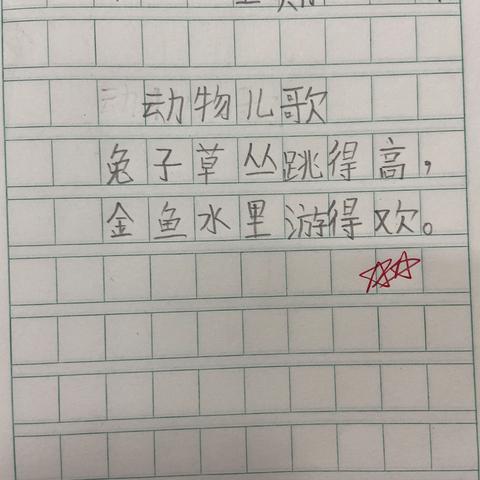 动物儿歌
兔子草丛跳得高，
金鱼水里游得欢。